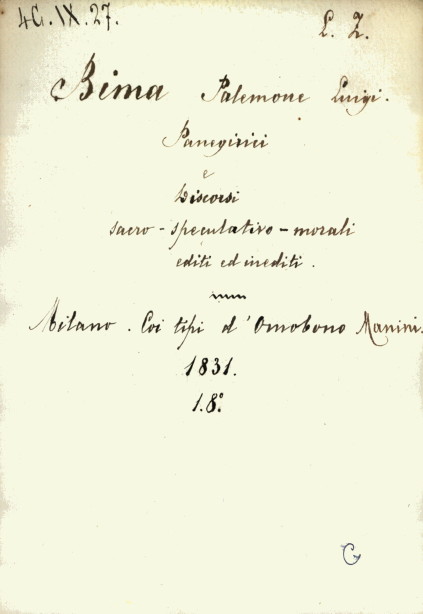 4G.IX.27.
L. Z.
Bima Palemone Luigi.
Panegirici
e
Discorsi
sacro-speculativo-morali
editi ed inediti.
Milano. Coi tipi d'Omobono Manini.
1831.
1.8°.
G